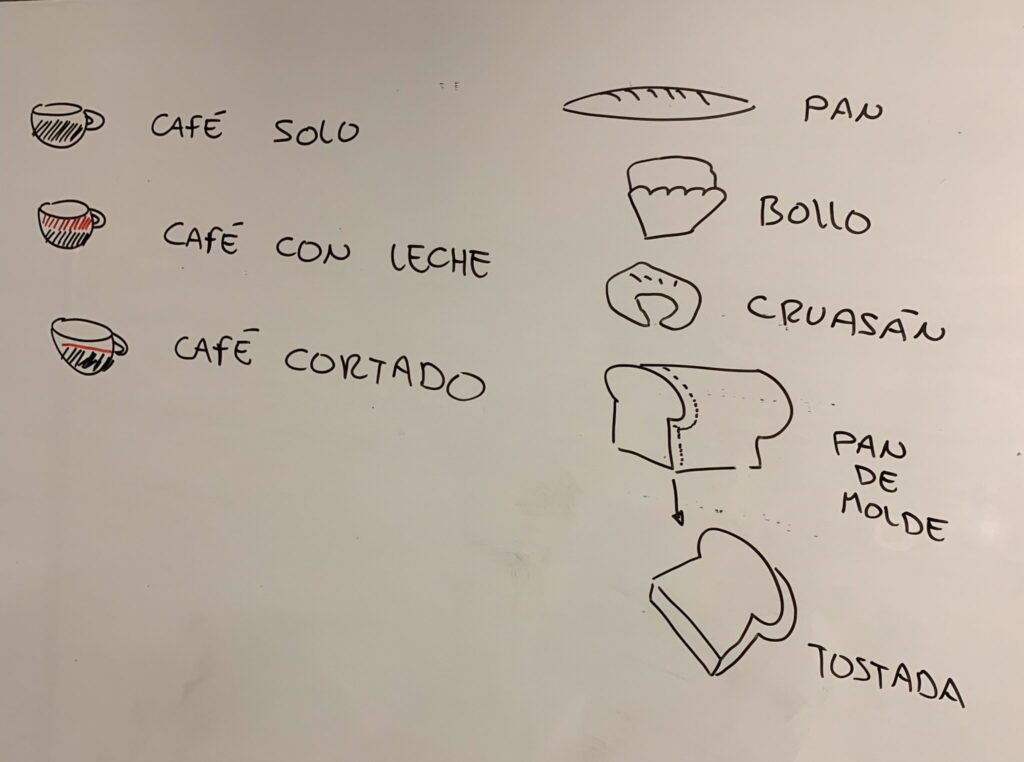 CAFÉ SOLO
CAFÉ CON LECHE
CAFÉ CORTADO
PAN
BOLLO
CRUASÁN
PAN
DE
MOLDE
TOSTADA